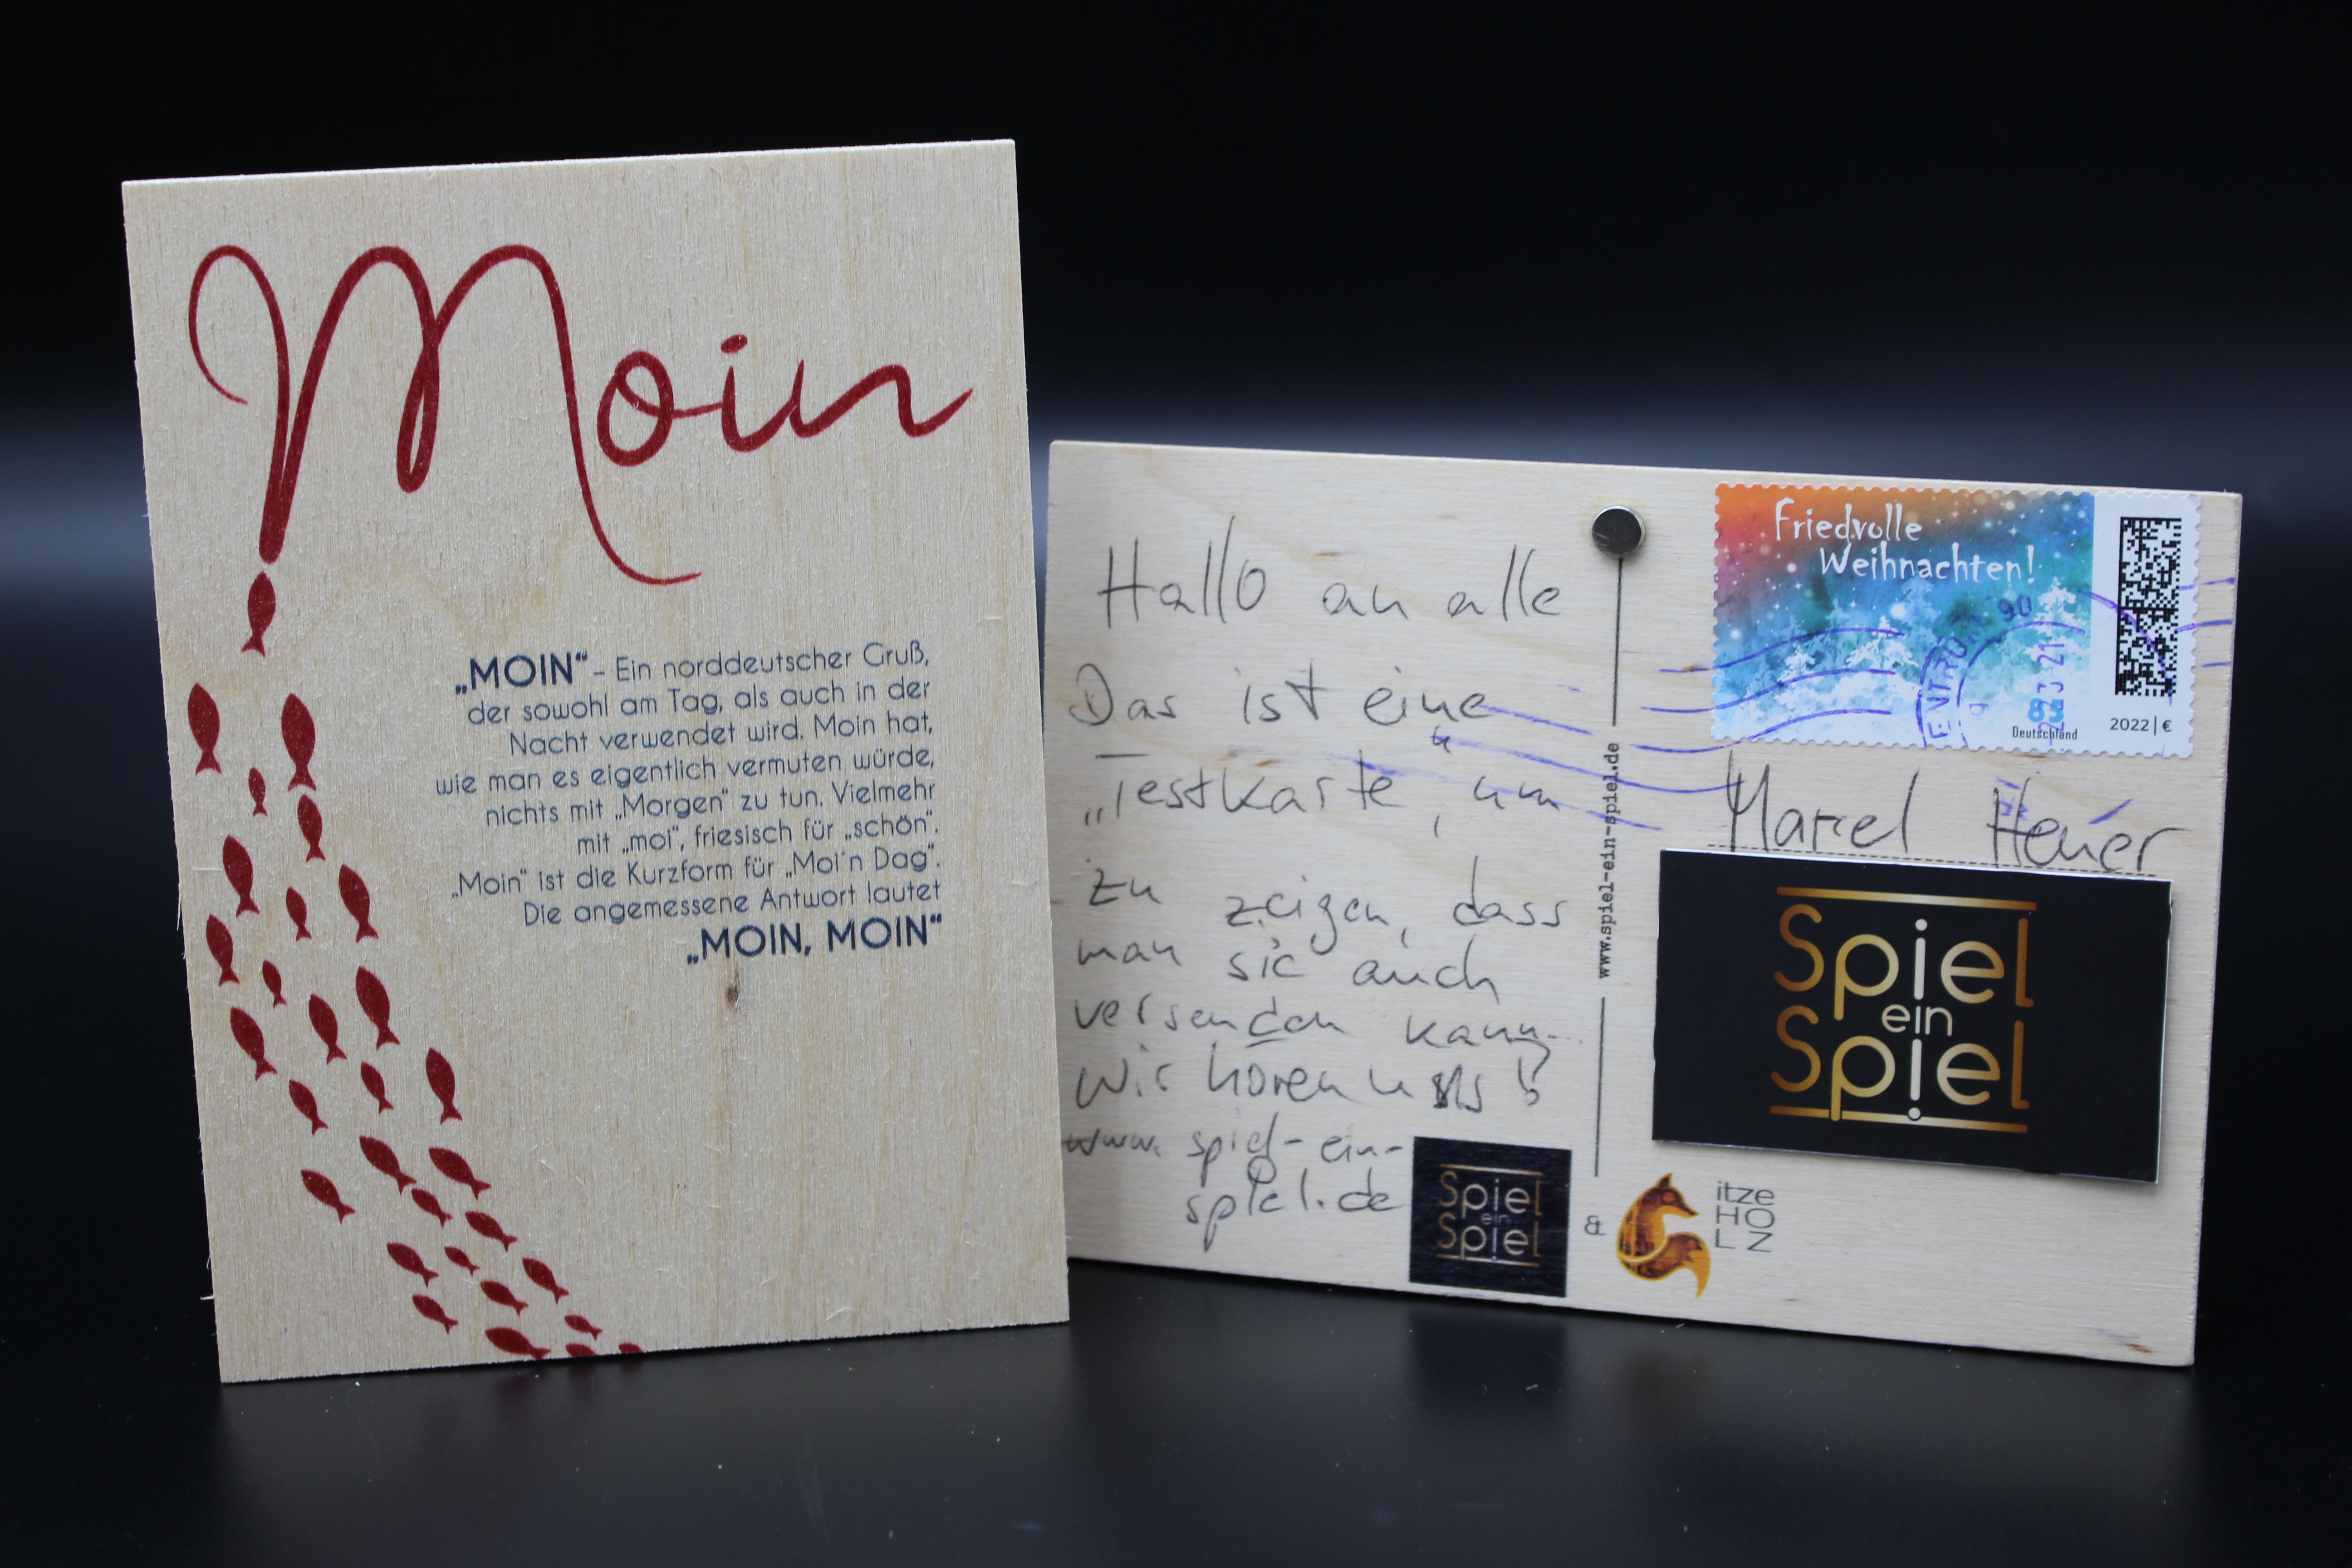 Moin
„MOIN“ – Ein norddeutscher Gruß,
der sowohl am Tag, als auch in der
Nacht verwendet wird. Moin hat,
wie man es eigentlich vermuten würde,
nichts mit „Morgen“ zu tun. Vielmehr
mit „moi“, friesisch für „schön“.
„Moin“ ist die Kurzform für „Moi´n Dag“.
Die angemessene Antwort lautet
„MOIN, MOIN“
Hallo an alle
Das ist eine
„Testkarte“, um
zu zeigen, dass
man sie auch
versenden kann
Wir hören uns!
www.spiel-ein-
spiel.de
Spiel
ein
Spiel
&
itze
HO
LZ
www.spiel-ein-spiel.de
Friedvolle
Weihnachten!
90
21
85
Deutschland
2022 | €
Marcel Heuer
Spiel
ein
Spiel